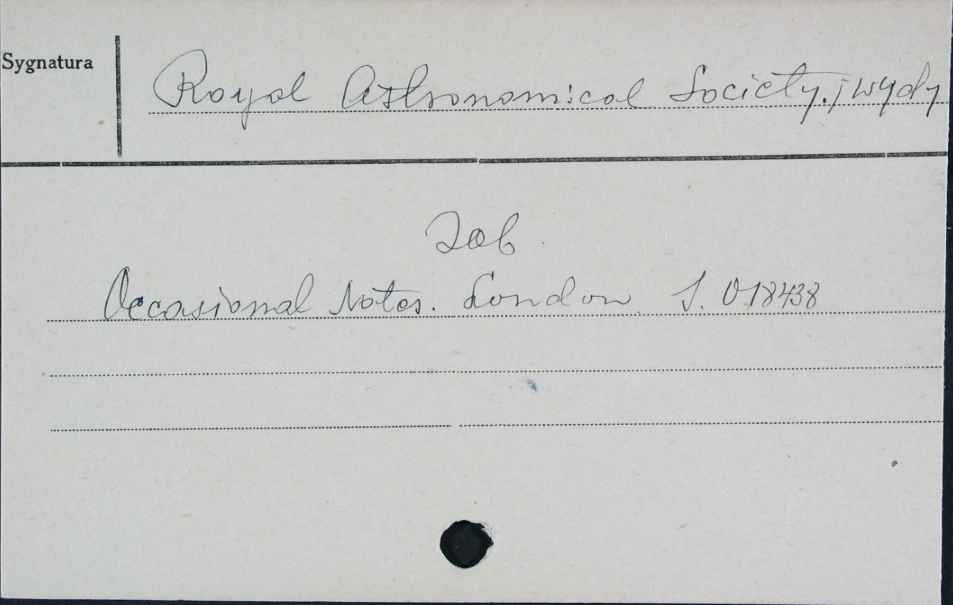 Sygnatura
Royal Astronomical Society. j wydy
Zob.
Occasional Notes. London S. 018438